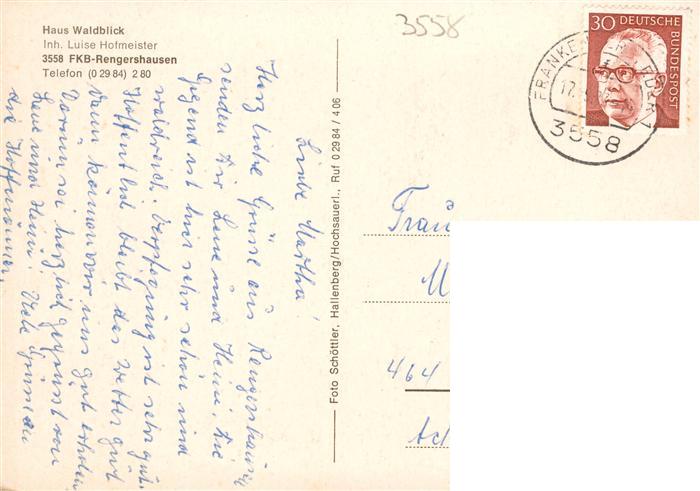 Haus Waldblick
Inh. Luise Hofmeister
3558 FKB-Rengershausen
Telefon (0 29 84) 2 80
3558
30 DEUTSCHE
BUNDESPOST
FRANKENBERG, EDER 1
17.
3558
Liebe Martha!
Herzliche Grüsse aus Rengershausen
senden Dir Lene und Heini. Die
Gegend ist hier sehr schön und
waldreich. Verpflegung ist sehr gut.
Hoffentlich bleibt das Wetter gut
dann können wir uns gut erholen.
Darum sei herzlich gegrüsst von
Lene und Heini. Viele Grüsse an
die Hoffmänner.
Foto Schöttler, Hallenberg/Hochsauerl., Ruf 0 29 84 / 4 06
Frau
464